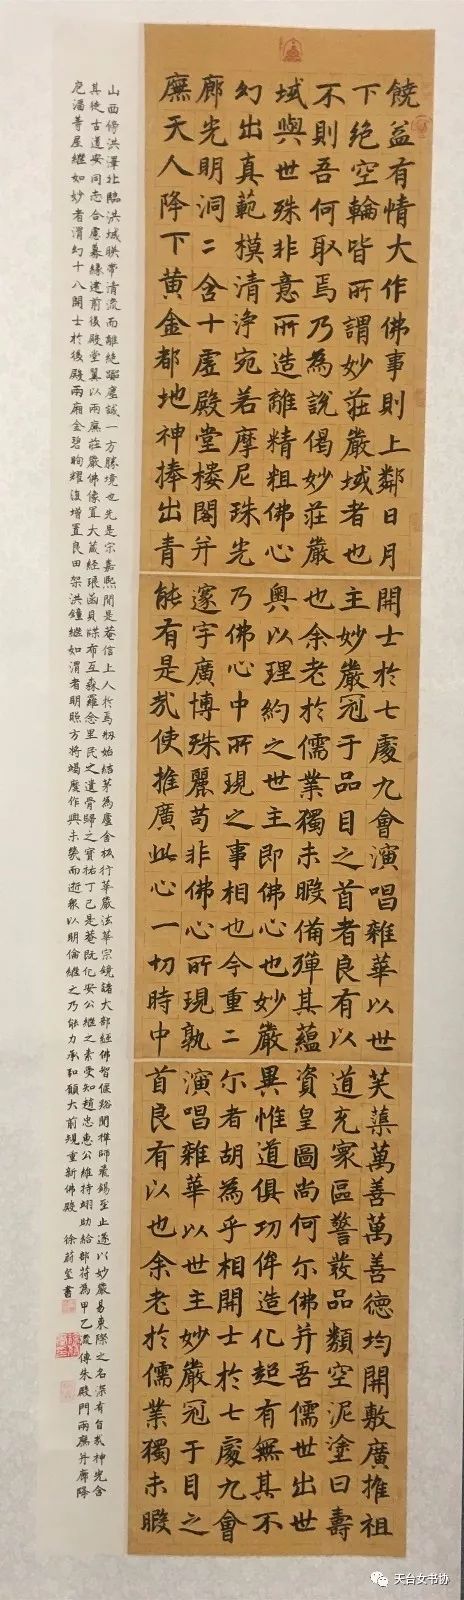 饒益有情大作佛事則上鄰日月
下绝空輪皆所謂妙莊嚴域者也
不則吾何取焉乃為說偈妙莊嚴
域與世殊非意所造離精粗佛心
幻出真範模清淨宛若摩尼珠光
廊光明洞二含十虛殿堂樓閣并
廡天人降下黄金都地神捧出青
開士於七處九會演唱雜華以世
主妙嚴冠于品目之首者良有以
也余老於儒業獨未暇備殫其蘊
奥以理約之世主即佛心也妙嚴
乃佛心中所現之事相也今重二
邃宇廣博殊麗苟非佛心所現孰
能有是哉使推廣此心一切時中
芙蕖萬善萬善德均開敷廣推祖
道充寰區警發品類空泥塗曰壽
資皇圖尚何尔佛并吾儒世出世
異惟道俱功侔造化超有無其不
尔者胡為乎相開士於七處九會
演唱雜華以世主妙嚴冠于目之
首良有以也余老於儒業獨未暇
山西傍洪澤北臨洪域映帶清流而離絕囂塵誠一方勝境也先是宋嘉熙間是菴信上人於焉刱始結茅為廬舍板行華嚴法華宗鏡諸大部經佛智偃谿聞禪師飛錫至止遂以妙嚴易東際之名深有旨哉神光含
其徒古道安同志合慮募緣建前後殿堂翼以兩廡莊嚴佛像置大藏經琅函貝牒布互森羅念里民之遺骨歸之寶祐丁巳是菴既化安公繼之素受知趙忠惠公維持翊助給部符為甲乙流傳朱殿門兩廡并廊降
危潘等屋繼如妙者渭幻十八開士於後殿兩廂金碧眴耀復增置良田架洪鐘繼如渭者明照方將竭作興未幾而逝衆以明倫繼之乃能力承和願大前規重新佛殿 徐蔚莹書
天台女书协